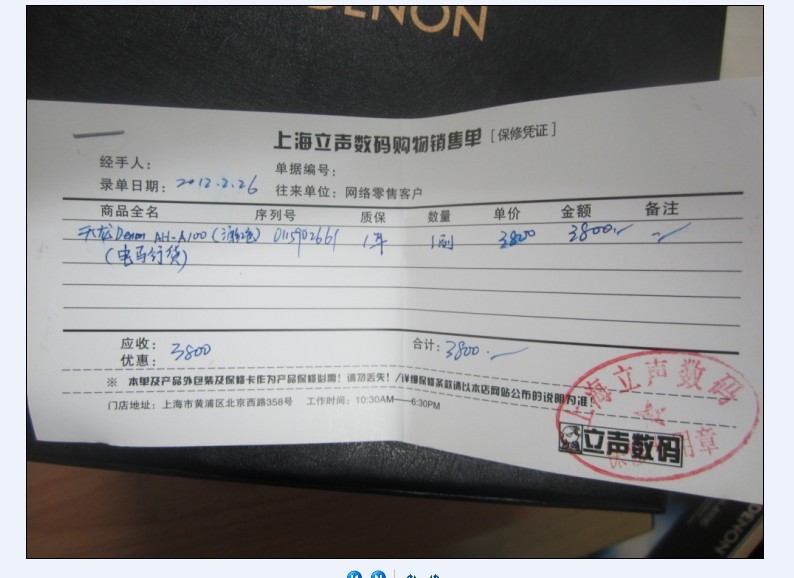 DENON
上海立声数码购物销售单 [保修凭证]
经手人: 单据编号:
录单日期: 2012.2.26 往来单位: 网络零售客户
商品全名 序列号 质保 数量 单价 金额 备注
天龙Denon AH-A100 (酒红色) 0115902661 1年 1副 3800 3800.
(电马行货)
应收: 3800 合计: 3800.
优惠:
※ 本单及产品外包装及保修卡作为产品保修必需! 请勿丢失! /详细保修条款请以本店网站公布的说明为准!
门店地址: 上海市黄浦区北京西路358号 工作时间: 10:30AM——6:30PM
上海立声数码
立声数码
用章
DENON